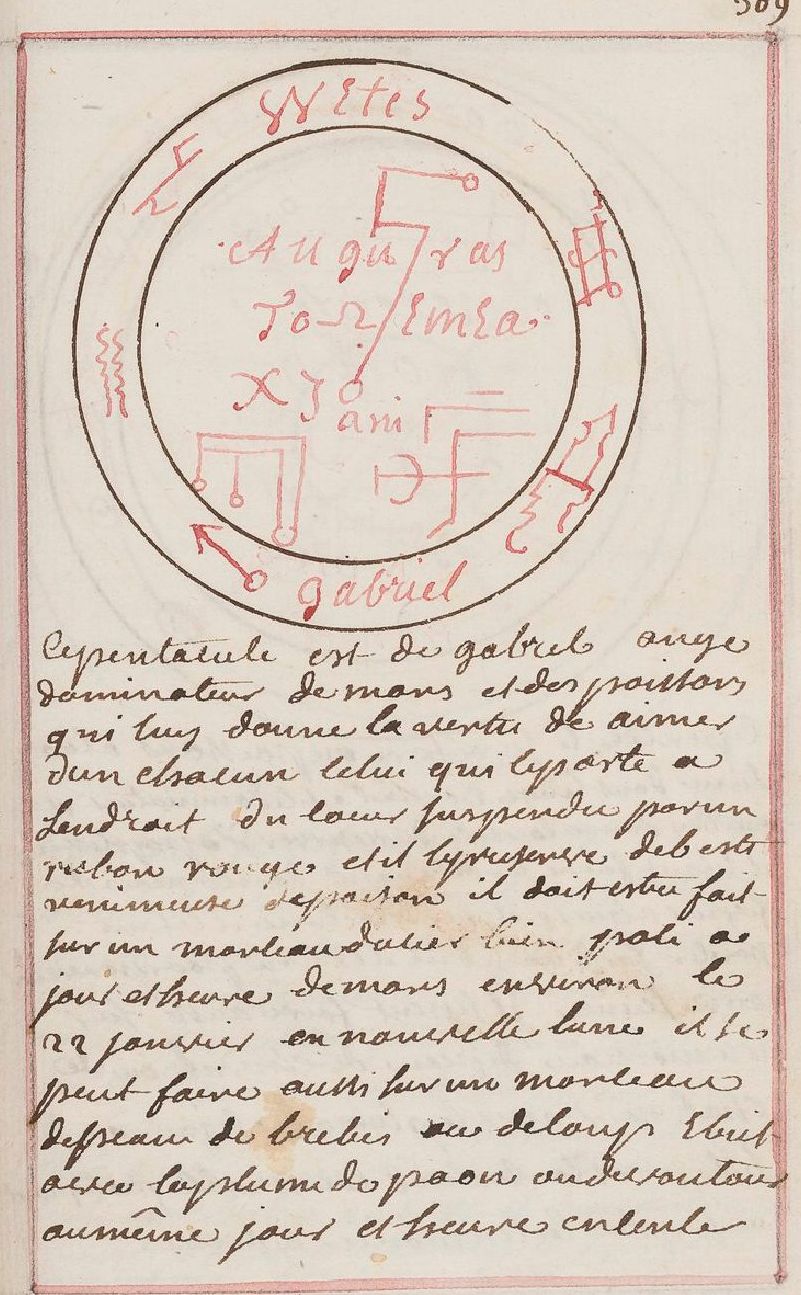 309
WEtes
Augu ras
To Emea
X J ani
gabriel
Cepentacule est de gabriel ange
dominateur de mars et des poissons
qui luy donne la vertu de aimer
dun chacun celui qui leporte a
Lendroit du coeur suspendu parun
ruban rouge et il lepreserve de bests
venimeuse depoison il doit estre fait
sur un morceau dacier bien poli a
jour et heure demars environ le
22 janvier en nouvelle lune il se
peut faire aussi sur un morceau
depeau de brebis ou deloup Ecrit
avec laplume de paon ou devautour
aumême jour et heure